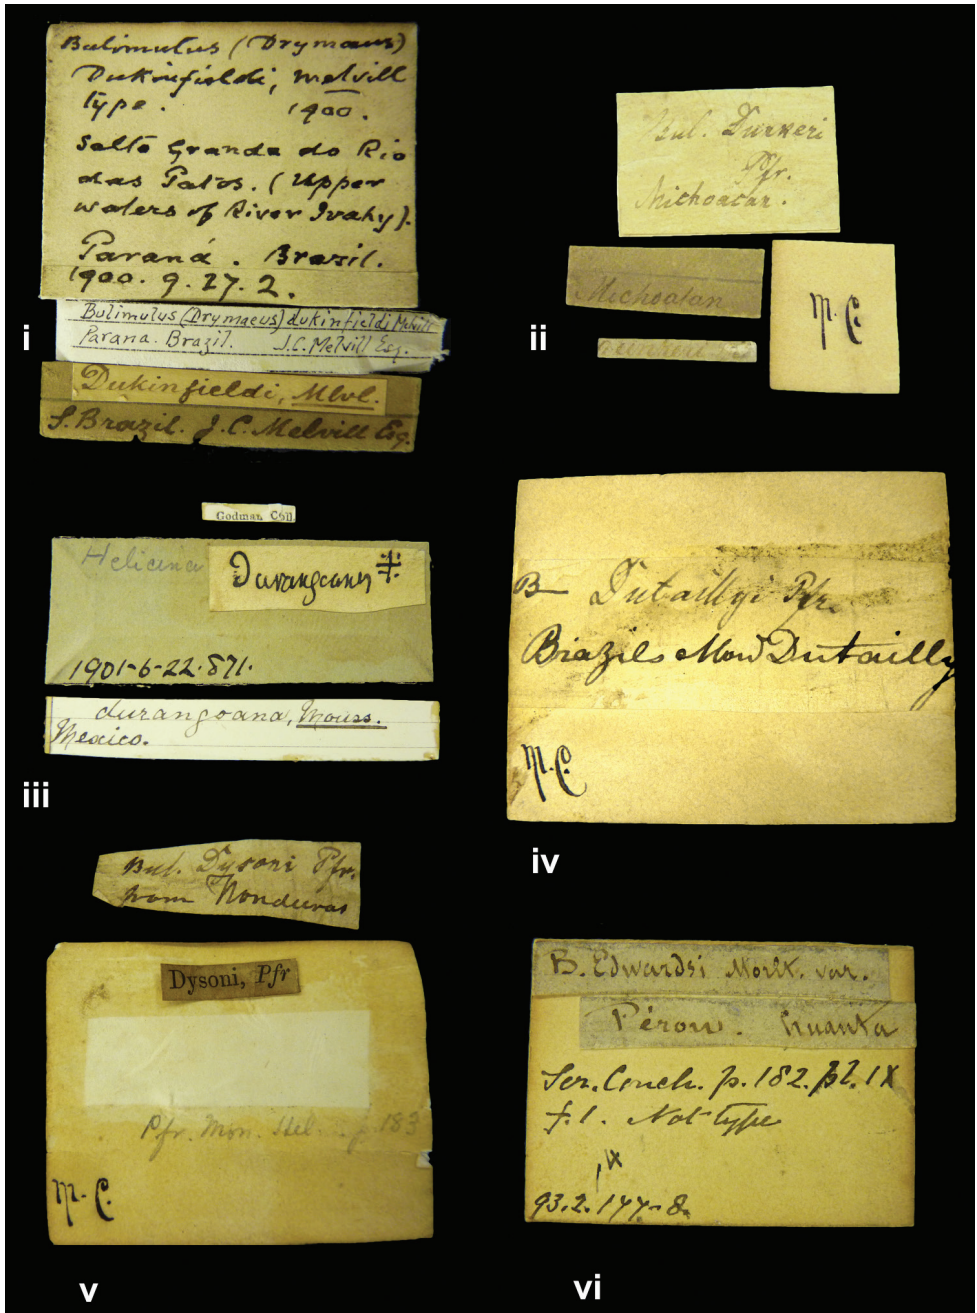 Bulimulus (Drymaeus)
Dukinfieldi, Melvill
type. 1900.
Salto Grande do Rio
das Patos. (Upper
waters of River Ivahy).
Paraná. Brazil.
1900. 9. 27. 2.
Bulimulus (Drymaeus) dukinfieldi Melvill
Parana. Brazil. J.C. Melvill Esq.
Dukinfieldi, Mlvl.
S. Brazil. J.C. Melvill Esq.
i
Bul. Dunkeri
Pfr.
Michoacan.
Michoacan
M.C.
ii
Godman Coll.
Helicina
Durangoana ‡
1901-6-22.871.
durangoana, Mouss.
Mexico.
iii
B Dutaillyi Pfr.
Brazils Mon Dutailly
M.C.
iv
Bul. Dysoni Pfr.
from Honduras
Dysoni, Pfr
Pfr. Mon. Hel. p. 183
M.C.
v
B. Edwardsi Morlt. var.
Pérou. Huanta
Ser. Conch. p. 182. pl. IX
f. 1. Not type
93.2.
vi